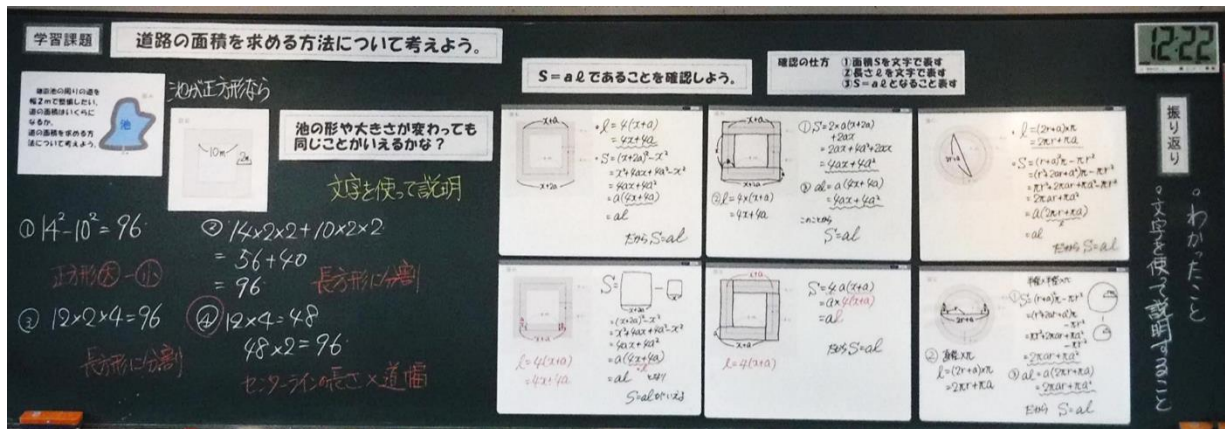 学習課題
道路の面積を求める方法について考えよう。
鎌田池の周りの道を
幅2mで整備したい。
道の面積はいくらに
なるか。
道の面積を求める方
法について考えよう。
池
池が正方形なら
10m
2m
池の形や大きさが変わっても
同じことがいえるかな？
文字を使って説明
① 14²-10²=96
正方形大-小
② 14×2×2+10×2×2
= 56+40
= 96
長方形に分割
③ 12×2×4=96
長方形に分割
④ 12×4=48
48×2=96
センターラインの長さ×道幅
S=aℓであることを確認しよう。
確認の仕方 ①面積Sを文字で表す
②長さℓを文字で表す
③S=aℓとなること表す
x+a
x+2a
・ℓ=4(x+a)
=4x+4a
・S=(x+2a)²-x²
=x²+4ax+4a²-x²
=4ax+4a²
=a(4x+4a)
=aℓ
だから S=aℓ
x+a
x+2a
①S=2×a(x+2a)
+2ax
=2ax+4a²+2ax
=4ax+4a²
②ℓ=4×(x+a)
=4x+4a
③aℓ=a(4x+4a)
=4ax+4a²
このことから
S=aℓ
2r+a
・ℓ=(2r+a)π
=2πr+πa
・S=(r+a)²π-πr²
=(r²+2ar+a²)π-πr²
=πr²+2πar+πa²-πr²
=2πar+πa²
=a(2πr+πa)
ℓ
=aℓ
だから S=aℓ
x+a
ℓ=4(x+a)
=4x+4a
S=
=(x+2a)²-x²
=x²+4ax+4a²-x²
=4ax+4a²
=a(4x+4a)
=aℓ
S=aℓがいえる
x+a
x+a
ℓ=4(x+a)
S=4a(x+a)
=a×4(x+a)
=aℓ
だからS=aℓ
半径×半径×π
2r+a
①S=(r+a)²π-πr²
=(r²+2ar+a²)π
-πr²
=πr²+2πar+πa²
-πr²
=2πar+πa²
②直径×π
ℓ=(2r+a)×π
=2πr+πa
③aℓ=a(2πr+πa)
=2πar+πa²
だから S=aℓ
12:22
振り返り
・わかったこと
・文字を使って説明すること